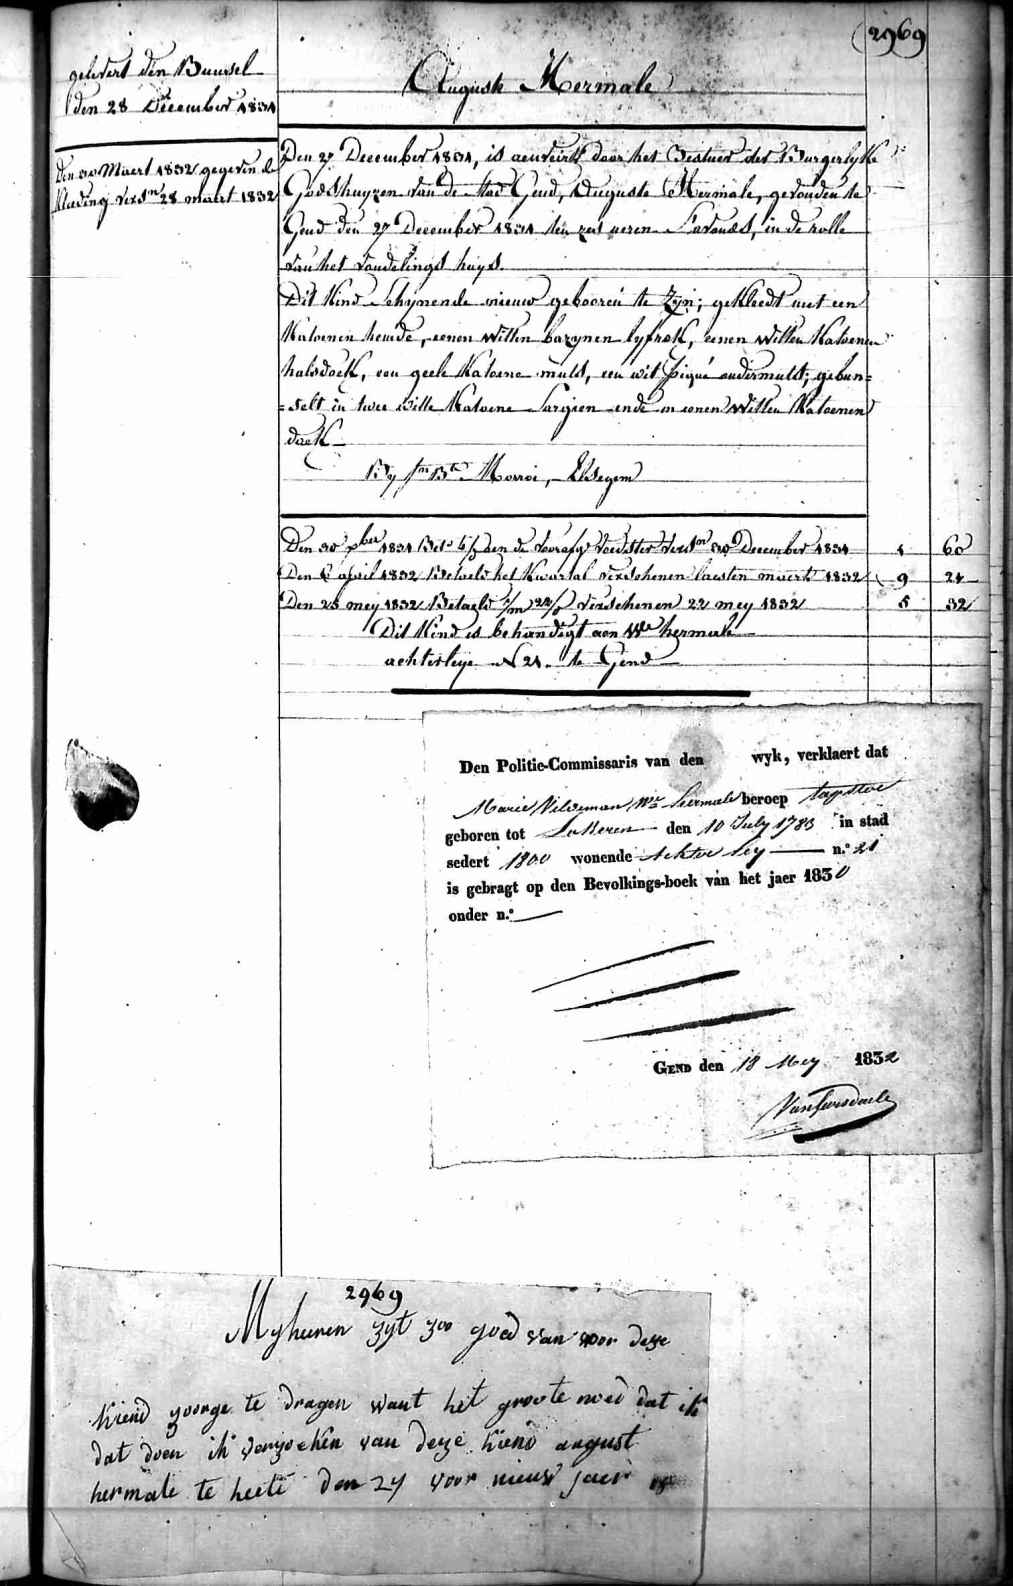 2969
gelevert den Bunsel
den 28 December 1831
Auguste Hermale
Den 30 Maert 1832 gegeven de
Kleeding versn 28 maert 1832
Den 27 December 1831, is aenveird door het Bestuer der Burgerlyke
Godshuyzen van de stad Gend, Auguste Hermale, gevonden te
Gend den 27 December 1831 ten zes ueren S'avonds, in de rolle
van het vondelings huys.
Dit Kind Schynende nieuw gebooren te Zyn; gekleedt met een
Katoenen hemde, eenen witten bazynen lyfrok, eenen witten Katoenen
halsdoek, een geele Katoene muts, een wit piqué ondermuts; gebun=
=selt in twee witte Katoene Sargien ende in eenen Witten Katoenen
doek
By Jn Bte Morroi, Elsegem
Den 30 xber 1831 den de voorsz voedster versn 30 December 1831 1 60
Den 6 april 1832 Betaeld het Kwartal verschenen laesten maert 1832 9 24
Den 25 mey 1832 Betaeld verschenen 22 mey 1832 5 32
Dit Kind is behandigt aen We hermale
achterleye N 21. te Gend
Den Politie-Commissaris van den wyk, verklaert dat
Marie Velleman We hermale beroep tapster
geboren tot Lokeren den 10 July 1783 in stad
sedert 1800 wonende Achter Ley n.o 21
is gebragt op den Bevolkings-boek van het jaer 1830
onder n.o
Gend den 18 Mey 1832
2969
Myheeren zyt zoo goed van voor deze
kiend zoorge te dragen want het groote noed dat ik
dat doen ik verzoeken van deze kiend august
hermale te heete den 27 voor nieuw jaer